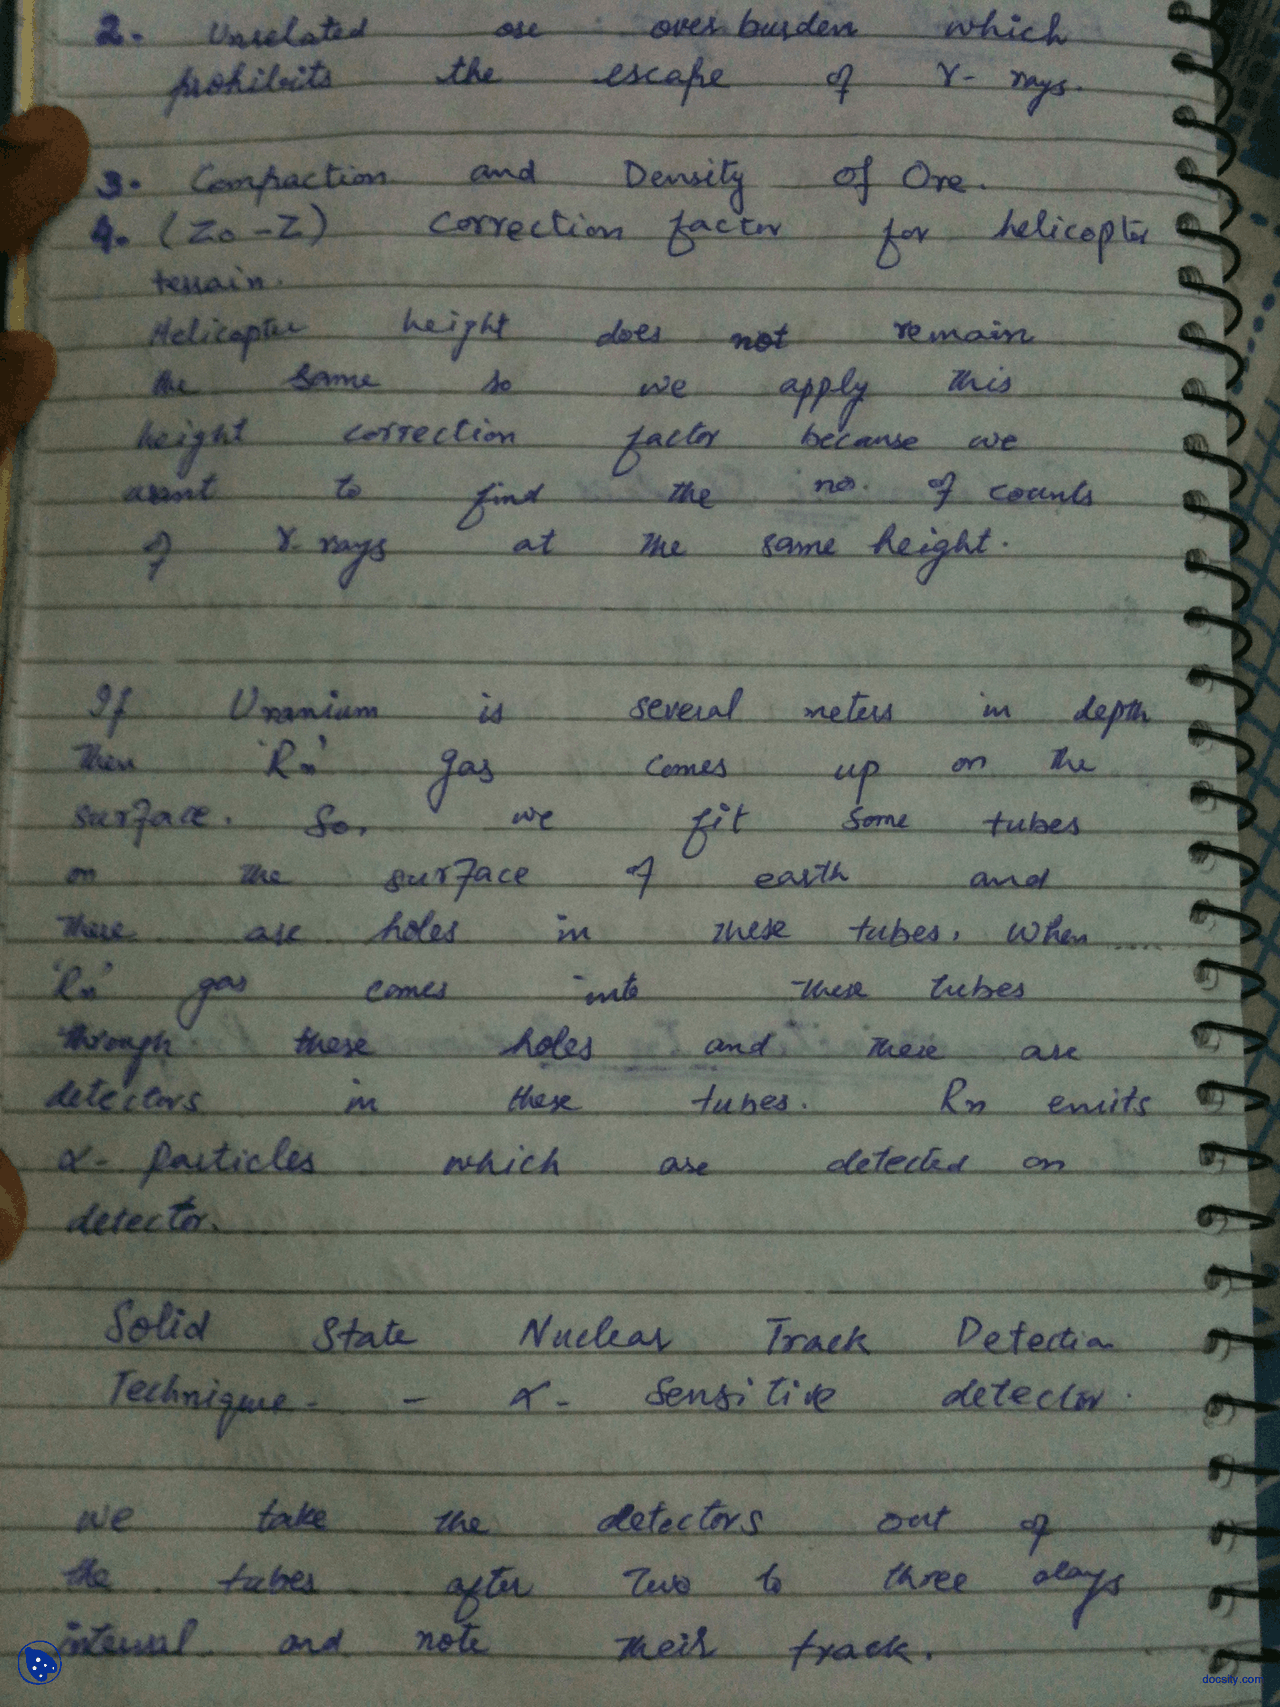 2. Unrelated or overburden which
prohibits the escape of γ- rays.
3. Compaction and Density of Ore.
4. (Z₀ - Z) correction factor for helicopter
terrain.
Helicopter height does not remain
the same so we apply this
height correction factor because we
want to find the no. of counts
of γ- rays at the same height.
If Uranium is several meters in depth
then 'Rn' gas comes up on the
surface. So, we fit some tubes
on the surface of earth and
there are holes in these tubes. When
'Rn' gas comes into these tubes
through these holes and there are
detectors in these tubes. Rn emits
α- particles which are detected on
detector.
Solid State Nuclear Track Detection
Technique - - α- Sensitive detector.
we take the detectors out of
the tubes after two to three days
interval and note their track.
docsity.com